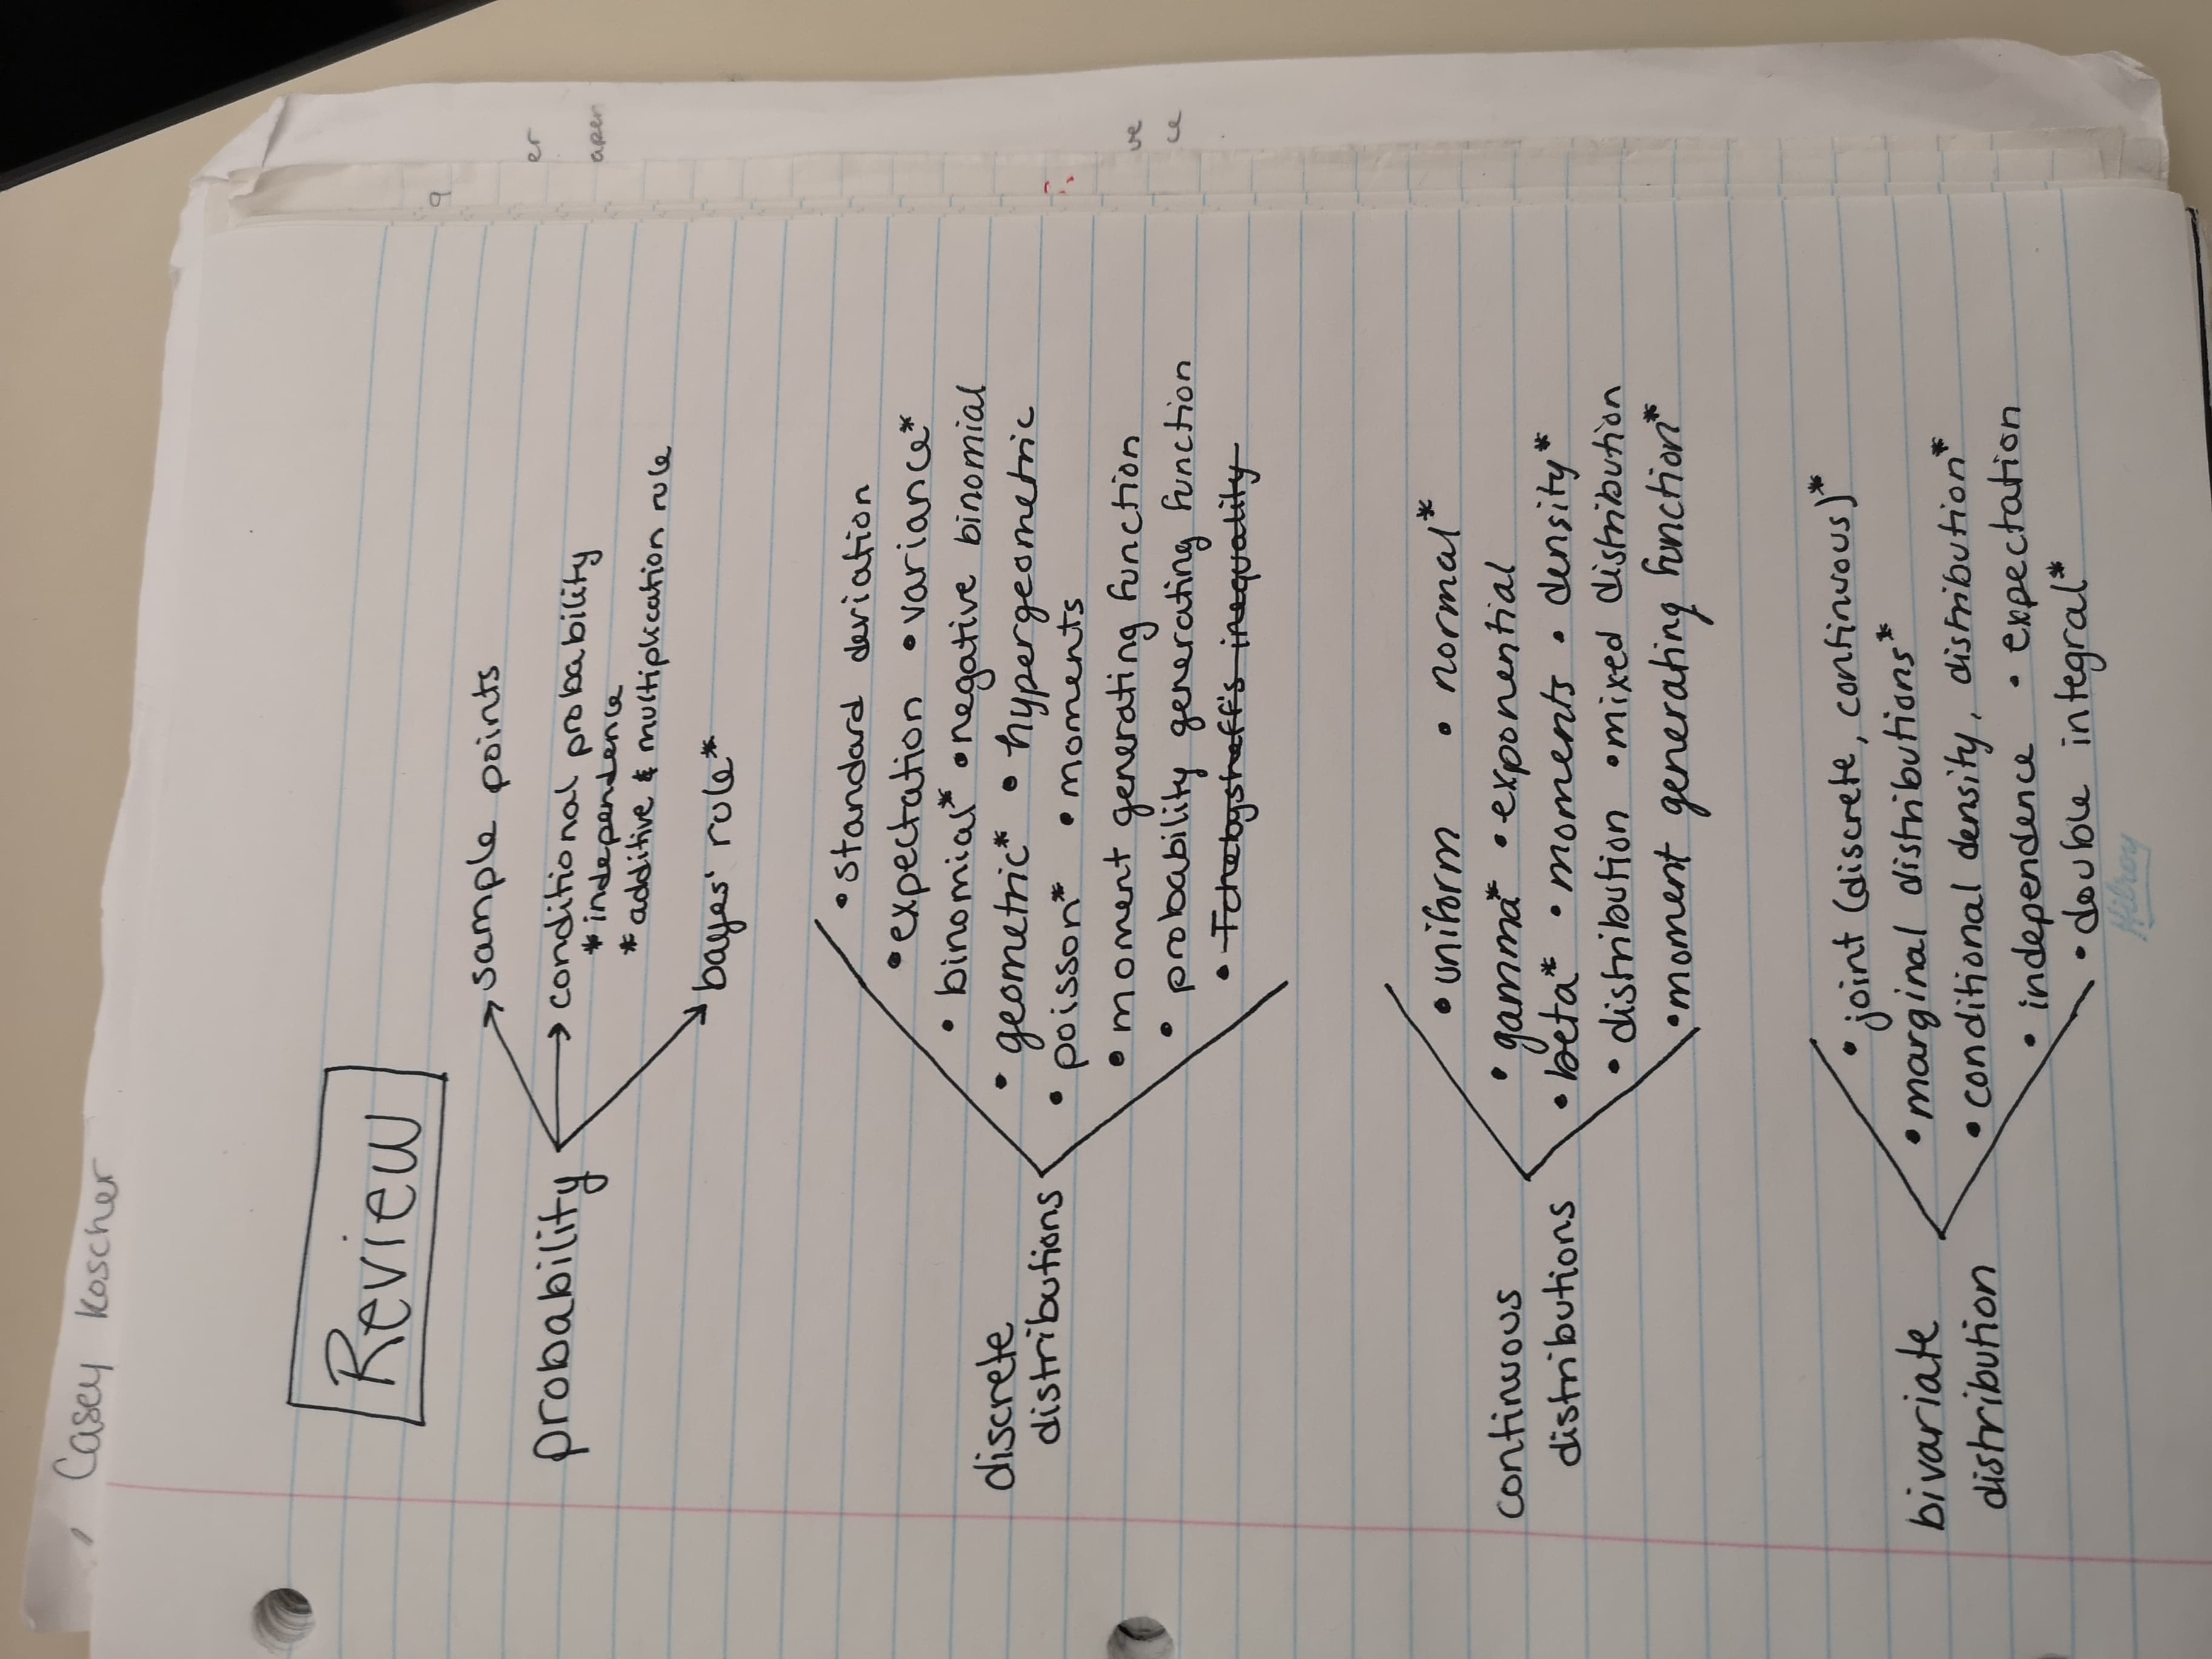 Casey Koscher
er
aper
ve
ce
Review
probability
→ sample points
→ conditional probability
* independence
* additive & multiplication rule
→ bayes' rule*
discrete
distributions
• standard deviation
• expectation • variance*
• binomial* • negative binomial
• geometric* • hypergeometric
• poisson* • moments
• moment generating function
• probability generating function
• Tchebysheff's inequality
continuous
distributions
• uniform • normal*
• gamma* • exponential
• beta* • moments • density*
• distribution • mixed distribution
• moment generating function*
bivariate
distribution
• joint (discrete, continuous)*
• marginal distributions*
• conditional density, distribution*
• independence • expectation
• double integral*
Hilroy